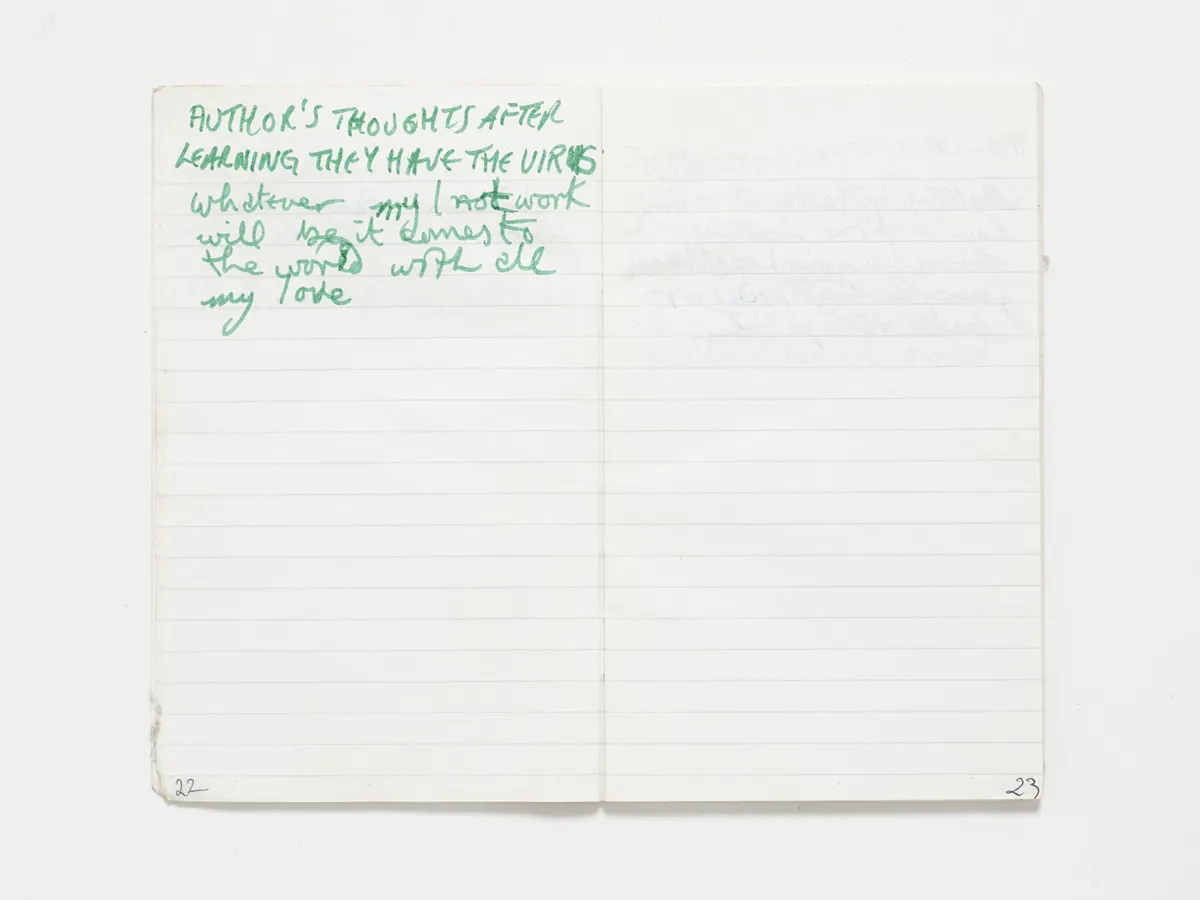 AUTHOR'S THOUGHTS AFTER
LEARNING THEY HAVE THE VIRUS
whatever my last work
will be it comes to
the world with all
my love
22
23